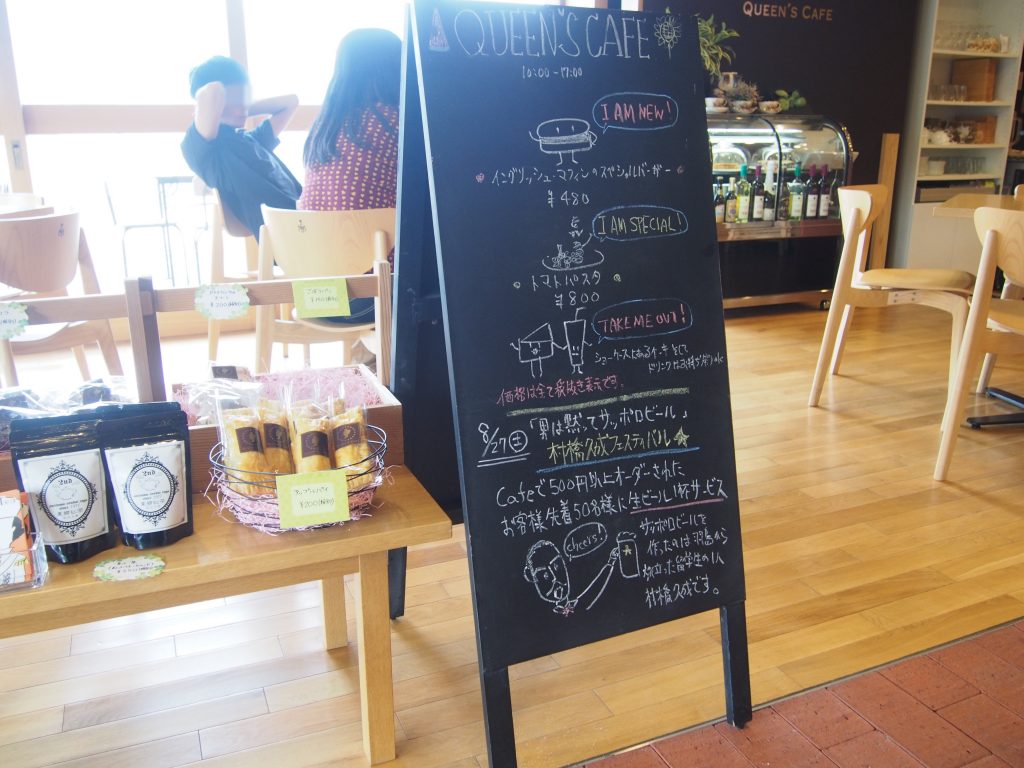 QUEEN'S CAFE
QUEEN'S CAFE
10:00-17:00
I AM NEW!
イングリッシュ・マフィンのスペシャルバーガー
¥480
I AM SPECIAL!
トマトパスタ
¥800
TAKE ME OUT!
ショーケースにあるケーキそして
ドリンクはお持ち帰りok
価格は全て税抜き表示です。
8/27㊏
「男は黙ってサッポロビール」
村橋久成フェスティバル
Cafeで500円以上オーダーされた
お客様先着50名様に生ビール1杯サービス
cheers!
サッポロビールを
作ったのは羽島から
旅立った留学生の1人
村橋久成です。
2nd
2nd
¥200(税別)